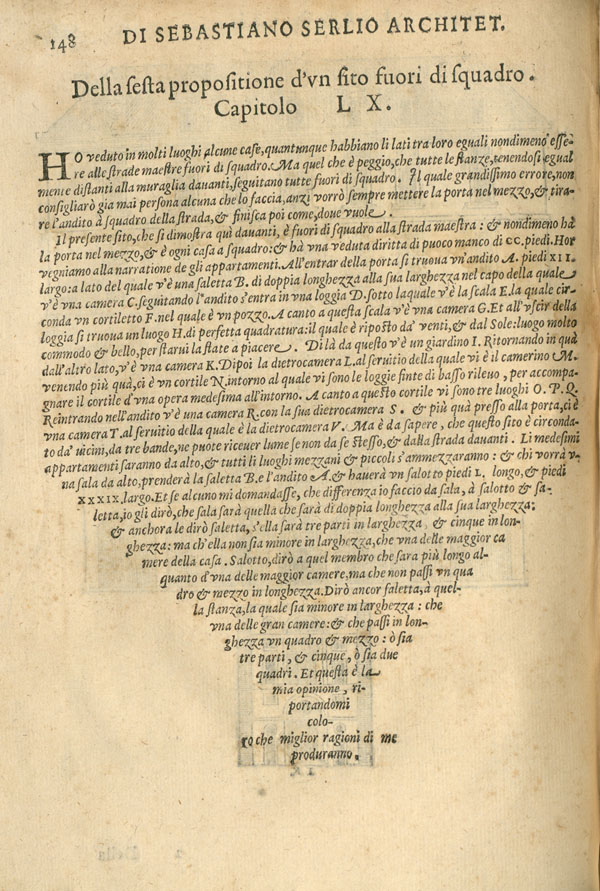 148
DI SEBASTIANO SERLIO ARCHITET.
Della sesta propositione d'vn sito fuori di squadro.
Capitolo LX.
HO veduto in molti luoghi alcune case, quantunque habbiano li lati tra loro eguali nondimeno esse-
re alle strade maestre fuori di squadro. Ma quel che è peggio, che tutte le stanze, tenendosi egual
mente distanti alla muraglia davanti, seguitano tutte fuori di squadro. Il quale grandissimo errore, non
consigliarò gia mai persona alcuna che lo faccia, anzi vorrò sempre mettere la porta nel mezzo, & tira-
re l'andito à squadro della strada, & finisca poi come, doue vuole.
Il presente sito, che si dimostra quì dauanti, è fuori di squadro alla strada maestra: & nondimeno hà
la porta nel mezzo, & è ogni casa a squadro: & hà vna veduta diritta di puoco manco di CC. piedi. Hor
vegniamo alla narratione de gli appartamenti. All'entrar della porta si truoua vn'andito A. piedi XII.
largo: a lato del quale v'è una saletta B. di doppia longhezza alla sua larghezza nel capo della quale
v'è vna camera C. seguitando l'andito s'entra in vna loggia D. sotto laquale v'è la scala E. la quale cir-
conda vn cortiletto F. nel quale è vn pozzo. A canto a questa scala v'è vna camera G. Et all'vscir della
loggia si truoua un luogo H. di perfetta quadratura: il quale è riposto da' venti, & dal Sole: luogo molto
commodo & bello, per starui la state a piacere. Di là da questo v'è un giardino I. Ritornando in quà
dall'altro lato, v'è vna camera K. Dipoi la dietrocamera L. al seruitio della quale vi è il camerino M.
venendo più quà, ci è vn cortile N. intorno al quale vi sono le loggie finte di basso rileuo, per accompa-
gnare il cortile d'vna opera medesima all'intorno. A canto a questo cortile vi sono tre luoghi O. P. Q.
Reintrando nell'andito v'è una camera R. con la sua dietrocamera S. & più quà presso alla porta, ci è
vna camera T. al seruitio della quale è la dietrocamera V. Ma è da sapere, che questo sito è circonda-
to da' uicini, da tre bande, ne puote riceuer lume se non da se stesso, & dalla strada davanti. Li medesimi
appartamenti saranno da alto, & tutti li luoghi mezzani & piccoli s'ammezzaranno: & chi vorrà v-
na sala da alto, prenderà la saletta B. e l'andito A. & hauerà vn salotto piedi L. longo, & piedi
XXXIX. largo. Et se alcuno mi domandasse, che differenza io faccio da sala, à salotto & sa-
letta, io gli dirò, che sala sarà quella che sarà di doppia longhezza alla sua larghezza:
& anchora le dirò saletta, s'ella sarà tre parti in larghezza, & cinque in lon-
ghezza: ma ch'ella non sia minore in larghezza, che vna delle maggior ca
mere della casa. Salotto, dirò a quel membro che sara più longo al-
quanto d'vna delle maggior camere, ma che non passi vn qua
dro & mezzo in longhezza. Dirò ancor saletta, à quel-
la stanza, la quale sia minore in larghezza: che
vna delle gran camere: & che passi in lon-
ghezza vn quadro & mezzo: ò sia
tre parti, & cinque, ò sia due
quadri. Et questa è la
mia opinione, ri-
portandomi
colo-
ro che miglior ragioni di me
produranno.